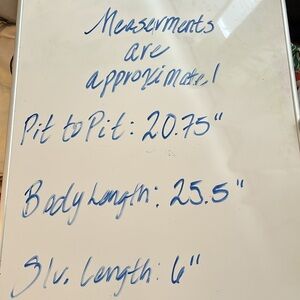 Measerments
are
approximate!
Pit to Pit: 20.75"
Body Length: 25.5"
Slv. Length: 6"